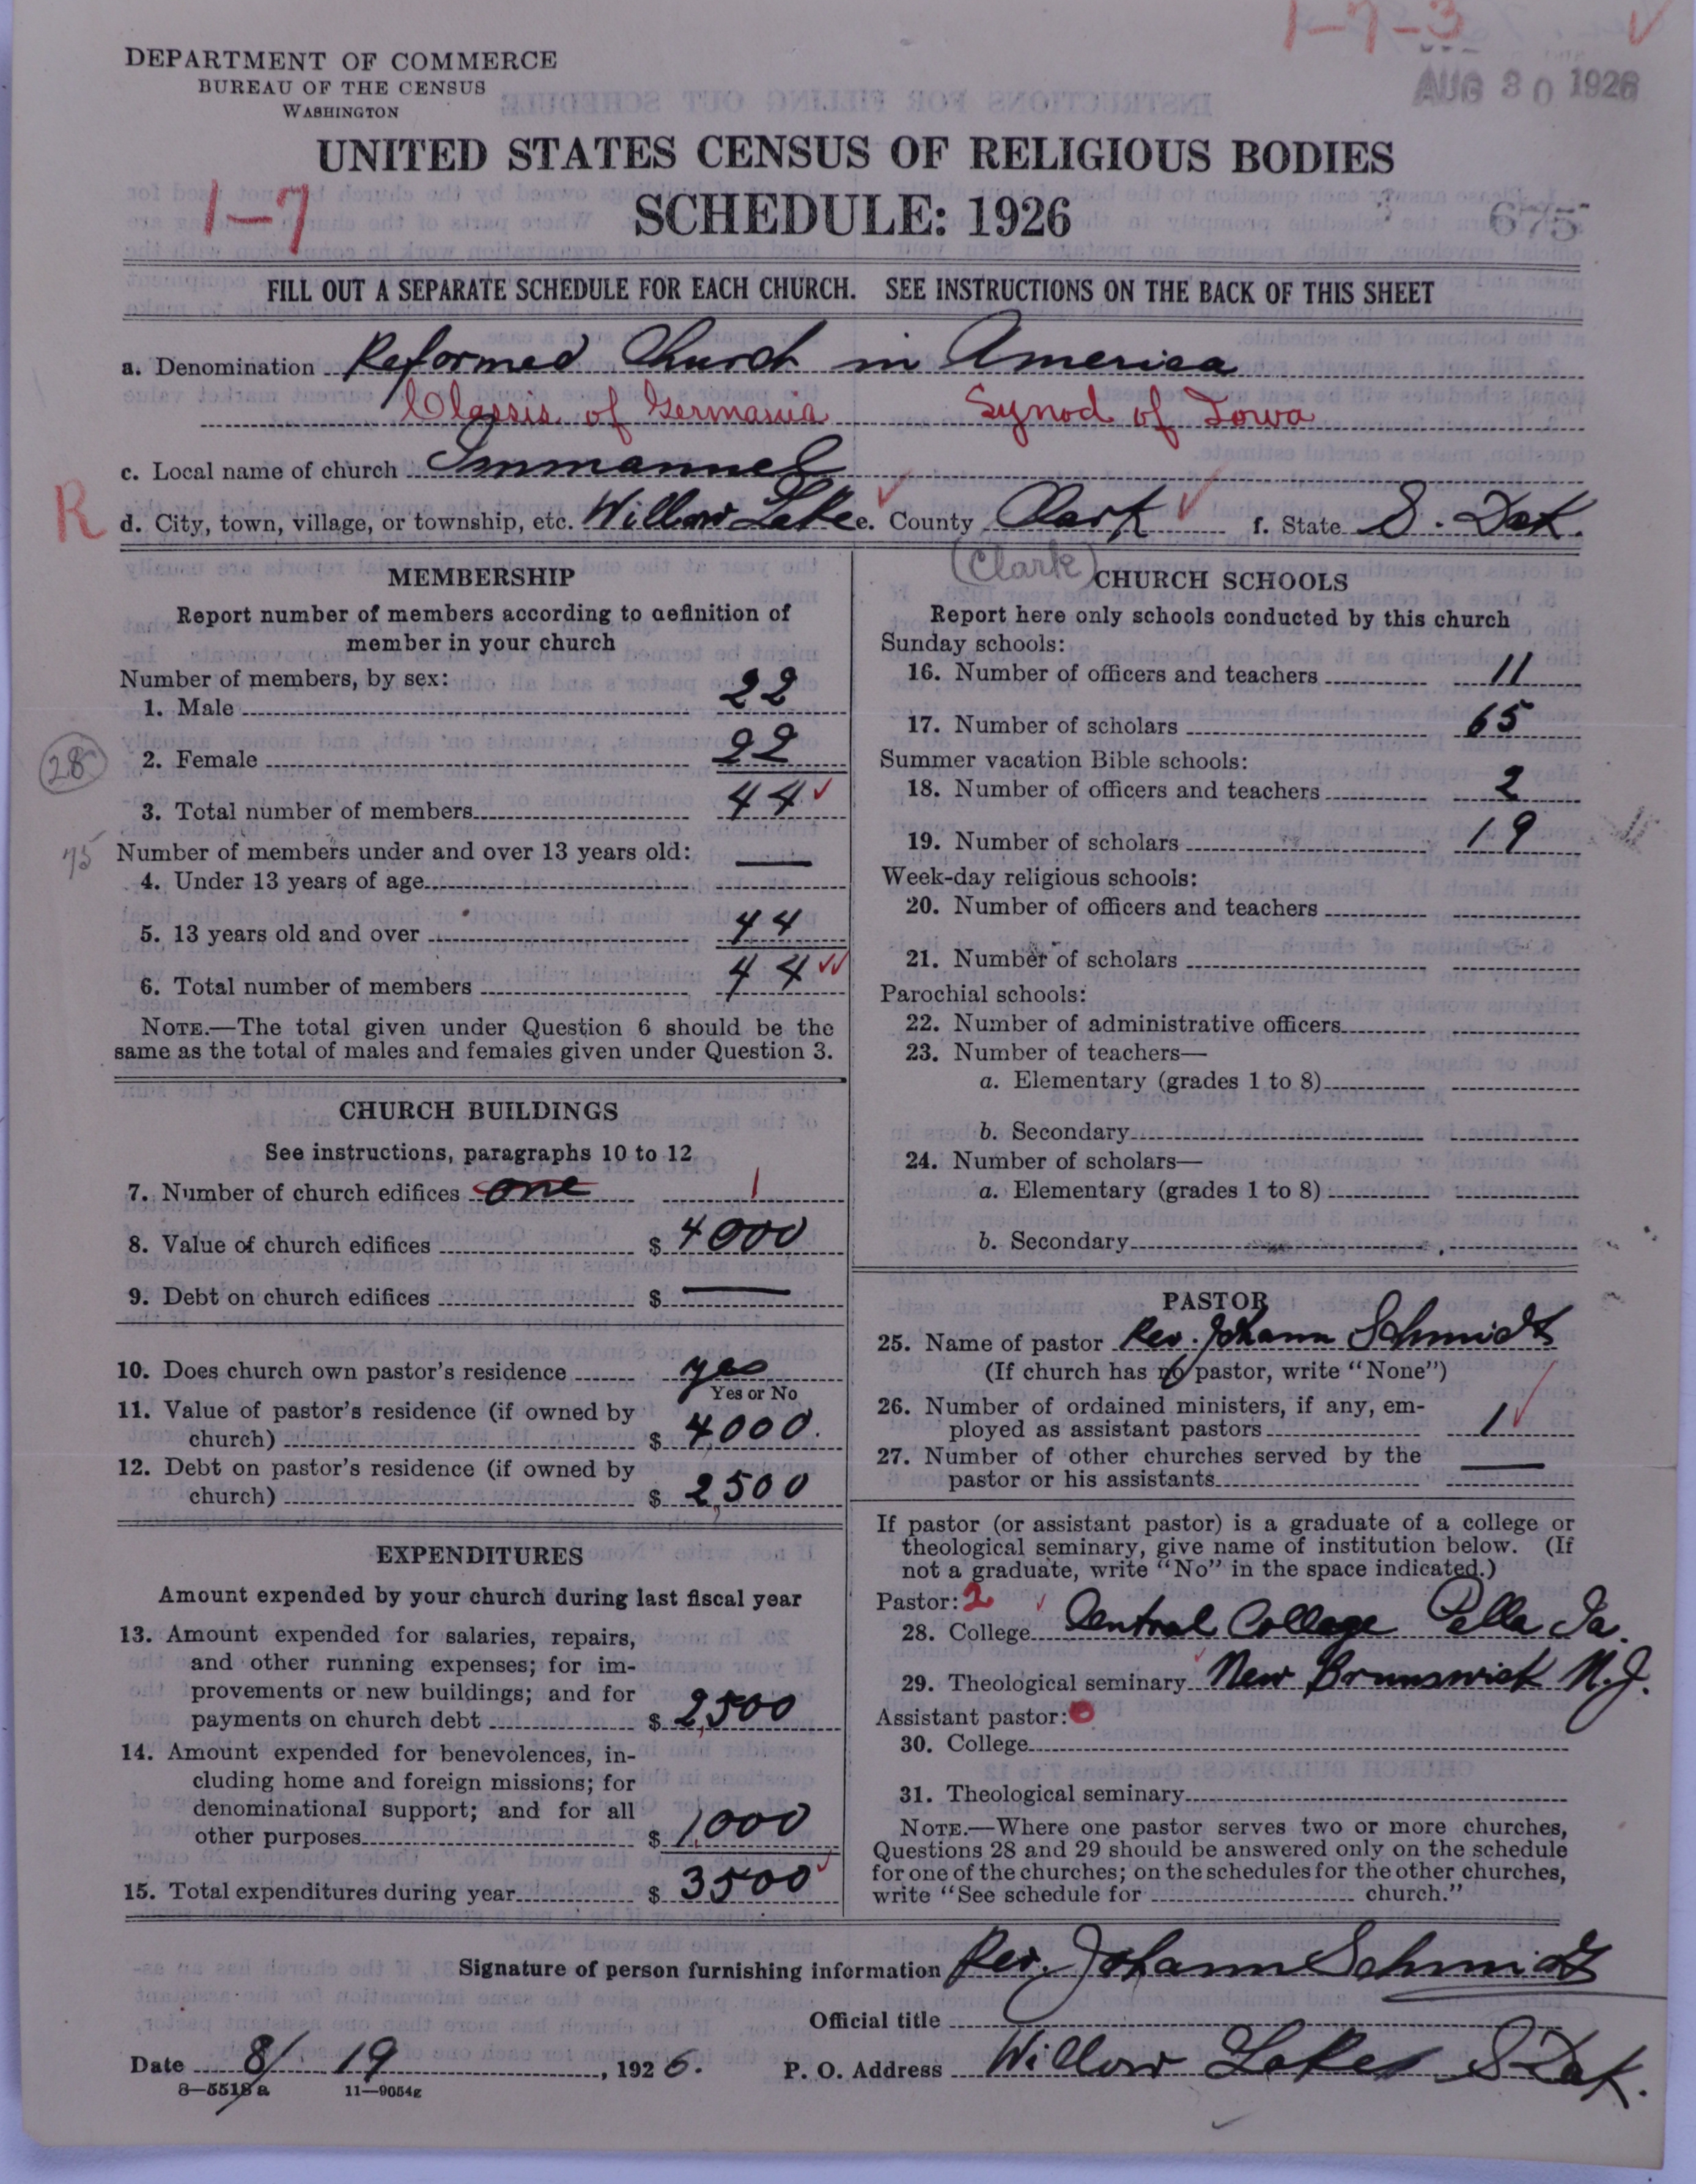 1-7-3
AUG 30 1926
DEPARTMENT OF COMMERCE
BUREAU OF THE CENSUS
WASHINGTON
UNITED STATES CENSUS OF RELIGIOUS BODIES
1-7
SCHEDULE: 1926
675
FILL OUT A SEPARATE SCHEDULE FOR EACH CHURCH. SEE INSTRUCTIONS ON THE BACK OF THIS SHEET
a. Denomination Reformed Church in America
Classis of Germania Synod of Iowa
c. Local name of church Immanuel
R
d. City, town, village, or township, etc. Willow Lake e. County Clark f. State S. Dak.
(Clark)
MEMBERSHIP
Report number of members according to definition of
member in your church
Number of members, by sex:
1. Male 22
28
2. Female 22
3. Total number of members 44
75
Number of members under and over 13 years old:
4. Under 13 years of age —
5. 13 years old and over 44
6. Total number of members 44
NOTE.—The total given under Question 6 should be the
same as the total of males and females given under Question 3.
CHURCH BUILDINGS
See instructions, paragraphs 10 to 12
7. Number of church edifices one 1
8. Value of church edifices $ 4000
9. Debt on church edifices $ —
10. Does church own pastor's residence yes
Yes or No
11. Value of pastor's residence (if owned by
church) $ 4000.
12. Debt on pastor's residence (if owned by
church) $ 2,500
EXPENDITURES
Amount expended by your church during last fiscal year
13. Amount expended for salaries, repairs,
and other running expenses; for im-
provements or new buildings; and for
payments on church debt $ 2,500
14. Amount expended for benevolences, in-
cluding home and foreign missions; for
denominational support; and for all
other purposes $ 1,000
15. Total expenditures during year $ 3500
CHURCH SCHOOLS
Report here only schools conducted by this church
Sunday schools:
16. Number of officers and teachers 11
17. Number of scholars 65
Summer vacation Bible schools:
18. Number of officers and teachers 2
19. Number of scholars 19
Week-day religious schools:
20. Number of officers and teachers
21. Number of scholars
Parochial schools:
22. Number of administrative officers
23. Number of teachers—
a. Elementary (grades 1 to 8)
b. Secondary
24. Number of scholars—
a. Elementary (grades 1 to 8)
b. Secondary
PASTOR
25. Name of pastor Rev. Johann Schmidt
(If church has no pastor, write "None")
26. Number of ordained ministers, if any, em-
ployed as assistant pastors 1
27. Number of other churches served by the
pastor or his assistants —
If pastor (or assistant pastor) is a graduate of a college or
theological seminary, give name of institution below. (If
not a graduate, write "No" in the space indicated.)
Pastor: 2
28. College Central College Pella Ia.
29. Theological seminary New Brunswick N.J.
Assistant pastor: 0
30. College
31. Theological seminary
NOTE.—Where one pastor serves two or more churches,
Questions 28 and 29 should be answered only on the schedule
for one of the churches; on the schedules for the other churches,
write "See schedule for church."
Signature of person furnishing information Rev. Johann Schmidt
Official title
Date 8/19, 1926. P. O. Address Willow Lakes S Dak.
8-5518a 11-9054g